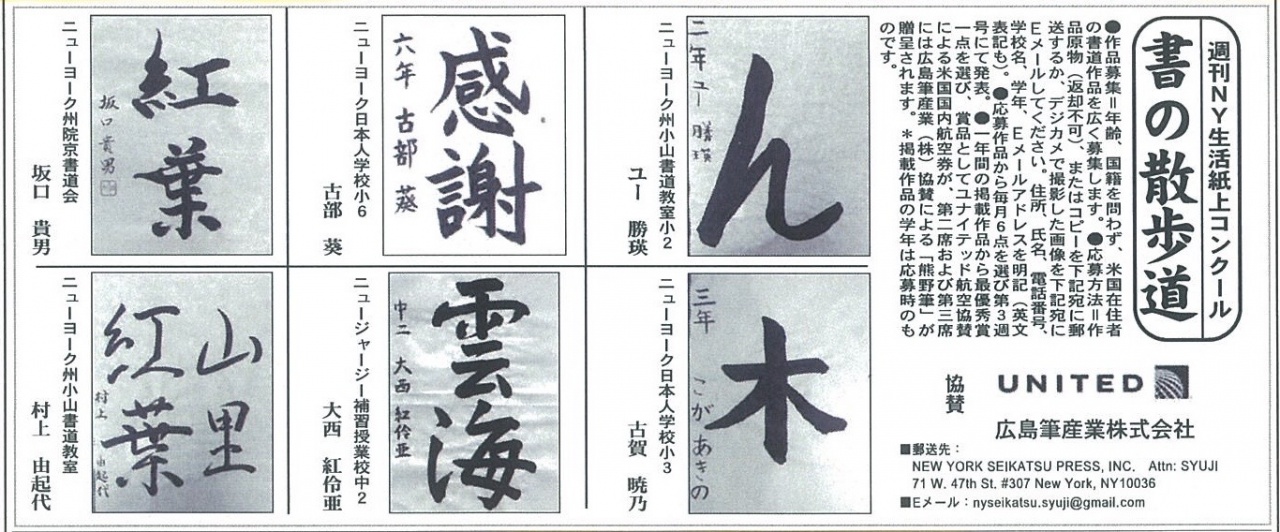 週刊NY生活紙上コンクール
書の散歩道
●作品募集＝年齢、国籍を問わず、米国在住者
の書道作品を広く募集します。●応募方法＝作
品原物（返却不可）、またはコピーを下記宛に郵
送するか、デジカメで撮影した画像を下記宛に
Eメールしてください。住所、氏名、電話番号、
学校名、学年、Eメールアドレスを明記（英文
表記も）。●応募作品から毎月6点を選び第3週
号にて発表。●一年間の掲載作品から最優秀賞
一点を選び、賞品としてユナイテッド航空協賛
による米国国内航空券が、第二席および第三席
には広島筆産業（株）協賛による「熊野筆」が
贈呈されます。＊掲載作品の学年は応募時のも
のです。
協賛
UNITED
広島筆産業株式会社
■郵送先：
NEW YORK SEIKATSU PRESS, INC. Attn: SYUJI
71 W. 47th St. #307 New York, NY10036
■Eメール：nyseikatsu.syuji@gmail.com
ん
二年 ユー 勝瑛
ニューヨーク州小山書道教室小2
ユー 勝瑛
感謝
六年 古部 葵
ニューヨーク日本人学校小6
古部 葵
紅葉
坂口貴男
ニューヨーク州院京書道会
坂口 貴男
木
三年 こが あきの
ニューヨーク日本人学校小3
古賀 暁乃
雲海
中二 大西 紅伶亜
ニュージャージー補習授業校中2
大西 紅伶亜
山里
紅葉
村上 由起代
ニューヨーク州小山書道教室
村上 由起代